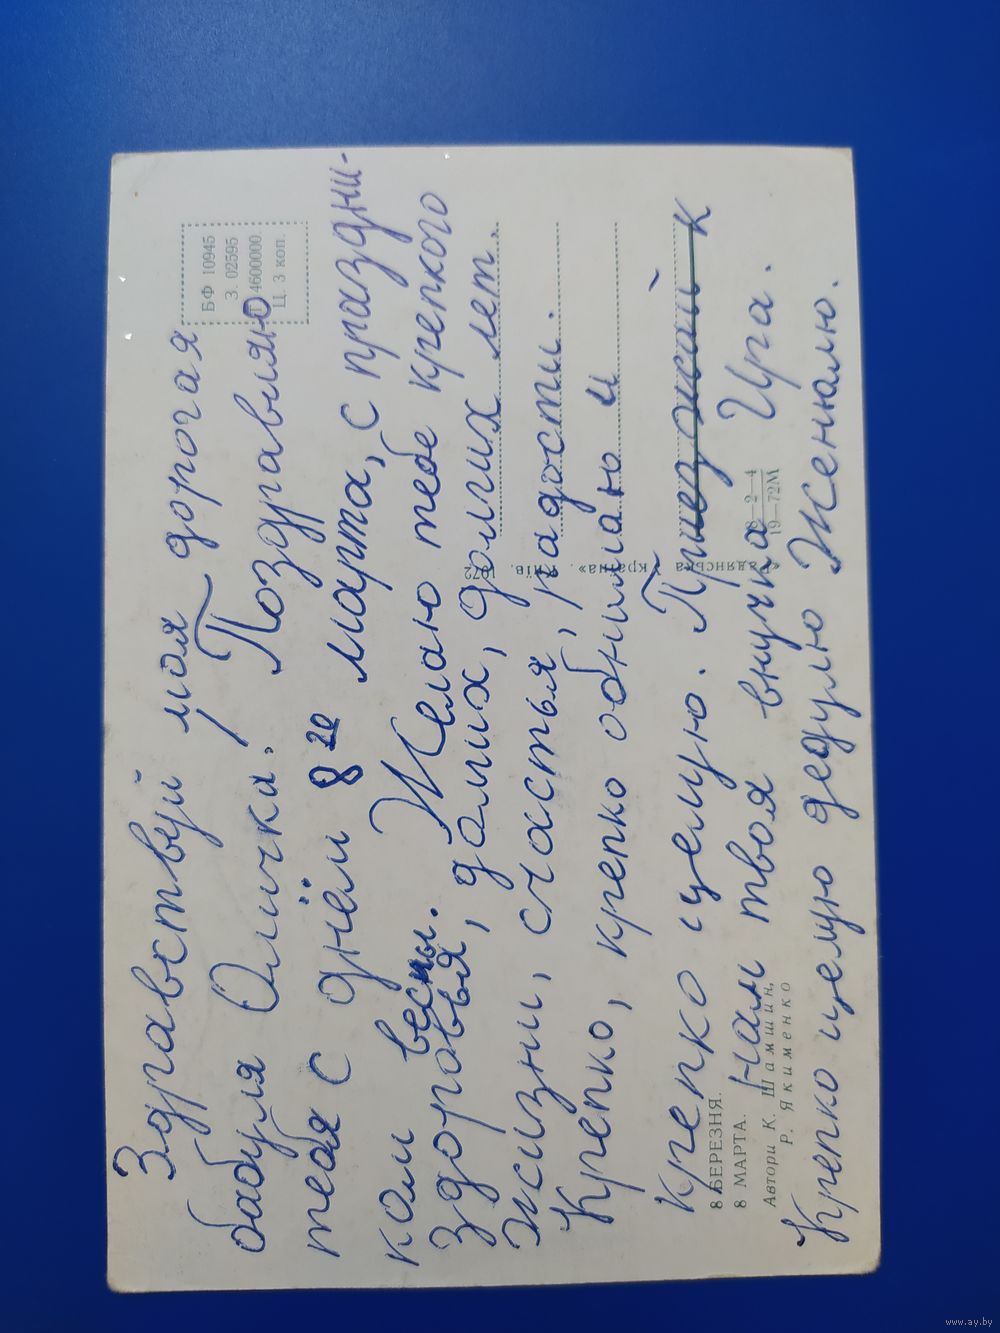 Здравствуй моя дорогая
бабуля Оличка! Поздравляю
тебя с днём 8 го марта, с праздни-
ком весны. Желаю тебе крепкого
здоровья, долгих, долгих лет.
жизни, счастья, радости.
Крепко, крепко обнимаю и
крепко целую. Приезжай к
нам твоя внучка Ира.
Крепко целую дедулю Женюлю.
БФ 10945
З. 02595
Т 4600000
Ц. 3 коп.
8 БЕРЕЗНЯ.
8 МАРТА.
Автори К. Шамшин,
Р. Якименко
Україна»
Київ. 1972
8—2—4
19—72М
www.ay.by